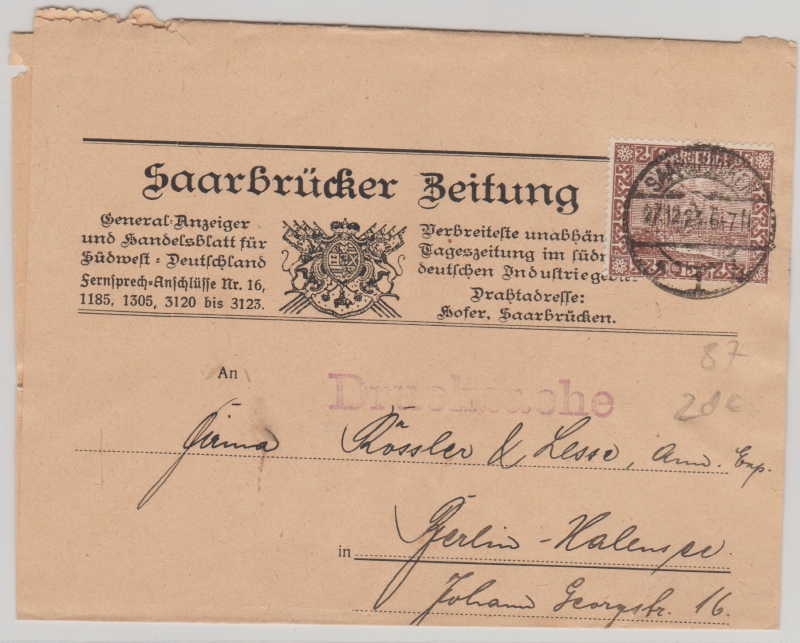 Saarbrücker Zeitung
General-Anzeiger
und Handelsblatt für
Südwest-Deutschland
Fernsprech-Anschlüsse Nr. 16,
1185, 1305, 3120 bis 3123.
Verbreiteste unabhän
Tageszeitung im südw
deutschen Industriegebiet
Drahtadresse:
Hofer, Saarbrücken.
27.12.23.6-7N
87
An
Drucksache
Firma Rössler & Lesse, Ann. Exp.
in Berlin-Halensee.
Johann Georgstr. 16.